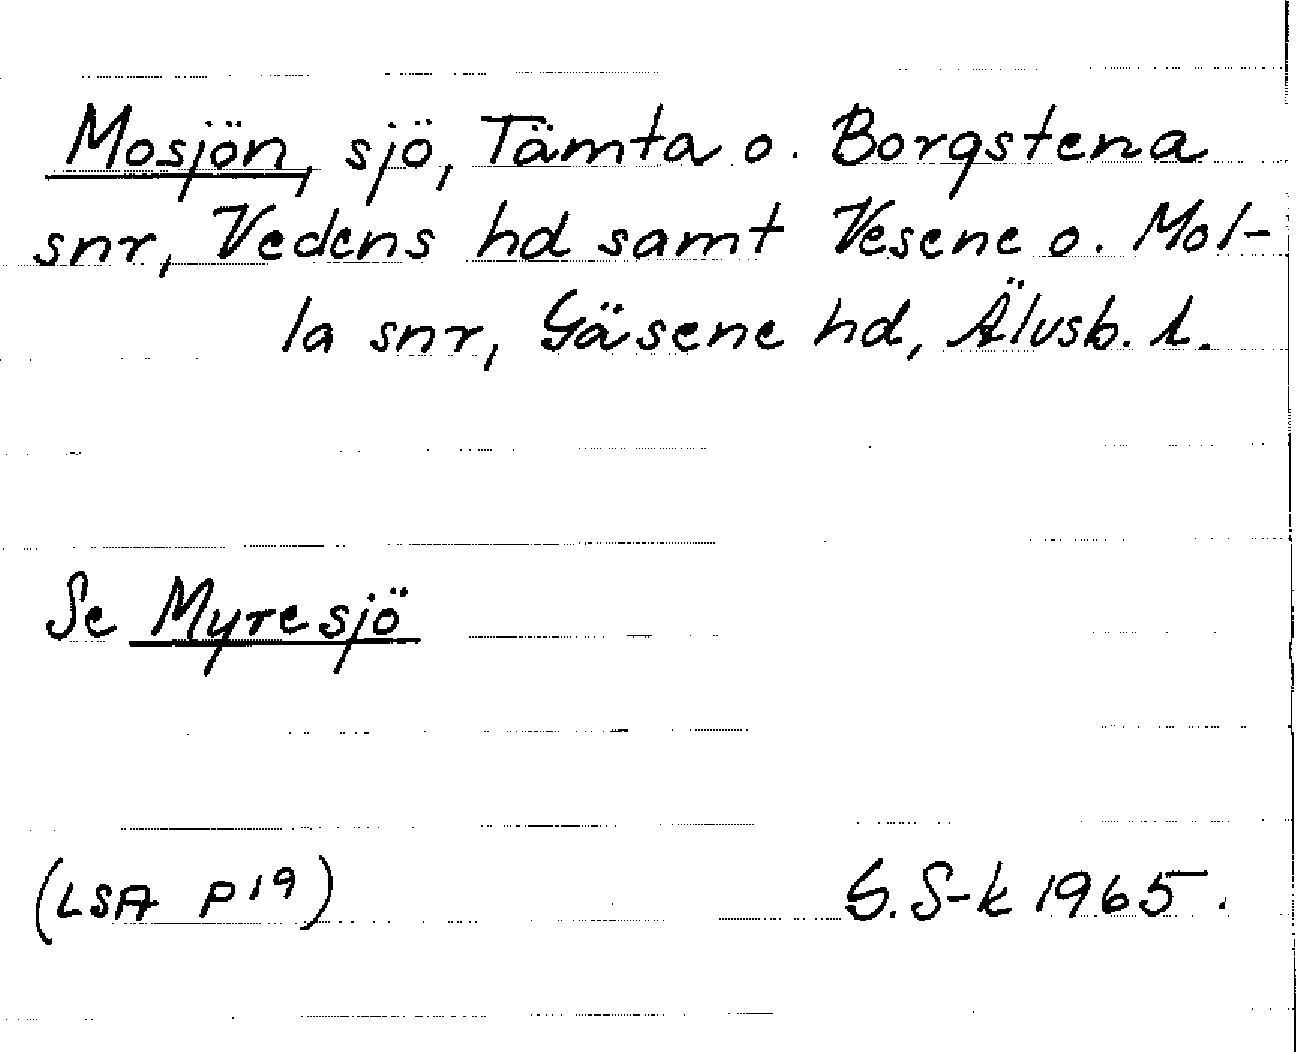 Mosjön, sjö, Tämta o. Borgstena
snr, Vedens hd samt Vesene o. Mol-
la snr, Gäsene hd, Älvsb. l.
Se Myresjö
(LSA P19)
G. S-k 1965.